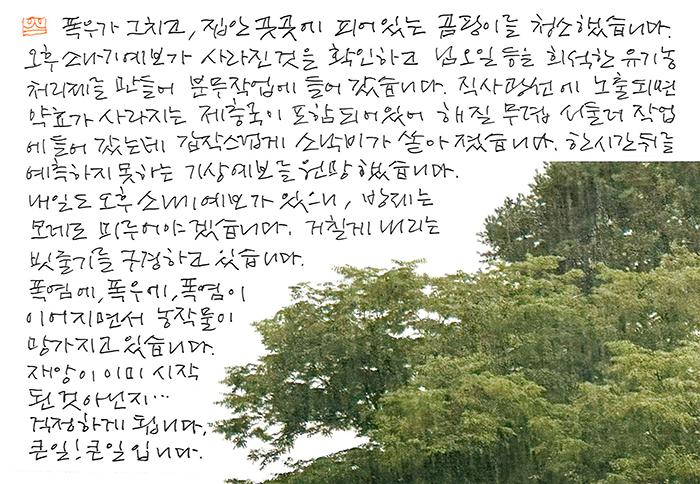 폭우가 그치고, 집안 곳곳에 피어있는 곰팡이를 청소했습니다.
오후 소나기예보가 사라진 것을 확인하고 님오일 등을 희석한 유기농
처리제를 만들어 분무작업에 들어 갔습니다. 직사광선에 노출되면
약효가 사라지는 제충국이 포함되어있어 해질 무렵 서둘러 작업
에 들어 갔는데 갑작스럽게 소낙비가 쏟아졌습니다. 한시간 뒤를
예측하지 못하는 기상예보를 원망했습니다.
내일도 오후 소나기예보가 있으니, 방제는
모레로 미루어야 겠습니다. 거칠게 내리는
빗줄기를 구경하고 있습니다.
폭염에, 폭우에, 폭염이
이어지면서 농작물이
망가지고 있습니다.
재앙이 이미 시작
된 것 아닌지...
걱정하게 됩니다.
큰일! 큰일입니다.